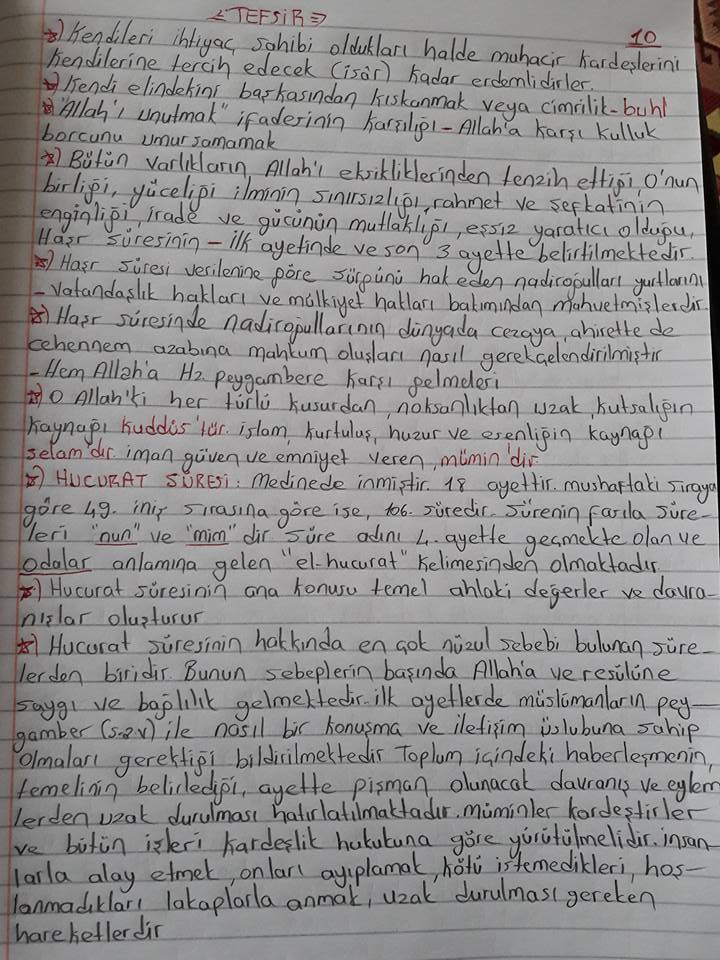 <TEFSİR>
10
*) Kendileri ihtiyaç sahibi oldukları halde muhacir kardeşlerini
kendilerine tercih edecek (isâr) kadar erdemlidirler.
*) Kendi elindekini başkasından kıskanmak veya cimrilik-buhl
*) "Allah'ı unutmak" ifadesinin karşılığı - Allah'a karşı kulluk
borcunu umursamamak
*) Bütün varlıkların, Allah'ı eksikliklerinden tenzih ettiği, O'nun
birliği, yüceliği ilminin sınırsızlığı, rahmet ve şefkatinin
enginliği, irade ve gücünün mutlaklığı, eşsiz yaratıcı olduğu,
Haşr sûresinin - ilk ayetinde ve son 3 ayette belirtilmektedir.
*) Haşr sûresi verilenine göre sürgünü hak eden nadiroğulları yurtlarını
- vatandaşlık hakları ve mülkiyet hakları bakımından mahvetmişlerdir.
*) Haşr sûresinde nadiroğullarının dünyada cezaya, ahirette de
cehennem azabına mahkum oluşları nasıl gerekçelendirilmiştir
- Hem Allah'a Hz. peygambere karşı gelmeleri
*) O Allah'ki her türlü kusurdan, noksanlıktan uzak, kutsalığın
kaynağı kuddûs'tür. islam, kurtuluş, huzur ve esenliğin kaynağı
selam'dır. iman güven ve emniyet veren, mümin'dir.
*) HUCURAT SÛRESİ: Medinede inmiştir. 18 ayettir. mushaftaki sıraya
göre 49. iniş sırasına göre ise, 106. sûredir. sûrenin fasıla süre-
leri "nun" ve "mim" dir süre adını 4. ayette geçmekte olan ve
odalar anlamına gelen "el-hucurat" kelimesinden olmaktadır.
*) Hucurat sûresinin ana konusu temel ahlaki değerler ve davra-
nışlar oluşturur
*) Hucurat sûresinin hakkında en çok nüzul sebebi bulunan sûre-
lerden biridir. Bunun sebeplerin başında Allah'a ve resûlüne
saygı ve bağlılık gelmektedir. ilk ayetlerde müslümanların pey-
gamber (s.a.v) ile nasıl bir konuşma ve iletişim üslubuna sahip
olmaları gerektiği bildirilmektedir Toplum içindeki haberleşmenin,
temelinin belirlediği, ayette pişman olunacak davranış ve eylem
lerden uzak durulması hatırlatılmaktadır. müminler kardeştirler
ve bütün işleri kardeşlik hukukuna göre yürütülmelidir. insan
larla alay etmek, onları ayıplamak, kötü istemedikleri, hoş-
lanmadıkları lakaplarla anmak, uzak durulması gereken
hareketlerdir